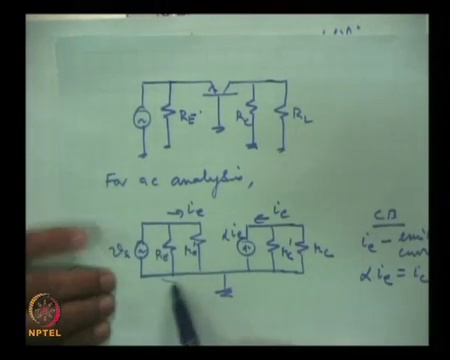 R_E
R_C
R_L
For ac analysis,
i_e
i_c
CB
v_s
R_E
r_e'
αi_e
r_c'
r_c
i_e – emi
curr
αi_e = i_c
NPTEL